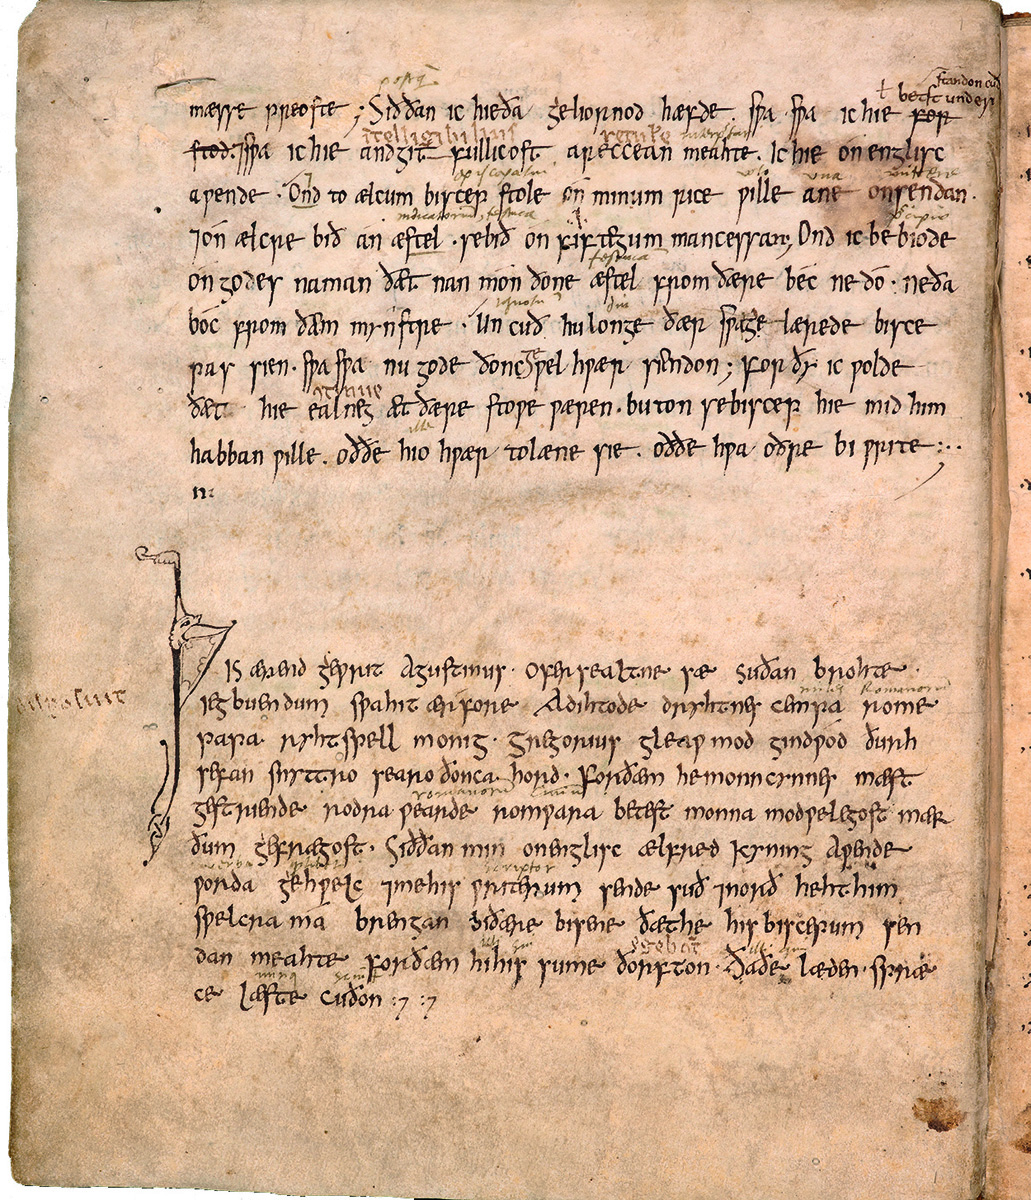 mæsse preoste; Siððan ic hie ða geliornod hæfde. swa swa ic hie for
stod. ⁊ swa ic hie andgitfullicost areccean meahte. Ic hie on englisc
awende. Ond to ælcum biscepstole on minum rice wille ane onsendan.
⁊ on ælcre bið an æstel. se bið on fiftegum mancessan; Ond ic bebiode
on godes naman ðæt nan mon ðone æstel from ðære bec ne do. ne ða
boc from ðæm mynstre. Uncuð hu longe ðær swa gelærede bisce
pas sien. swa swa nu gode ðonc gewel hwær siendon; For ðy ic wolde
ðæt hie ealneg æt ðære stowe wæren. buton se biscep hie mid him
habban wille. oððe hio hwær to læne sie. oððe hwa oðre bi write:
n:
Þis ærend gewrit Agustinus. Ofer sealtne sæ suðan brohte.
iegbuendum swa hit ær fore Adihtode dryhtnes cempa rome
papa. ryhtspell monig. Gregorius gleaw mod gindwod ðurh
sefan snyttro searo ðonca hord. Forðæm he monncynnes mæst
gestriende rodra wearde romwara betest monna modwelegost mær
ðum gefrægost. Siððan min on englisc ælfred kyning Awende
worda gehwelc ⁊ me his writerum sende suð ⁊ norð heht him
swelcra ma brengan bi ðære bisene ðæt he his biscepum sen
dan meahte forðæm hi his sume ðorfton. Ða ðe læden. spræ
ce læste cuðon :7 :7